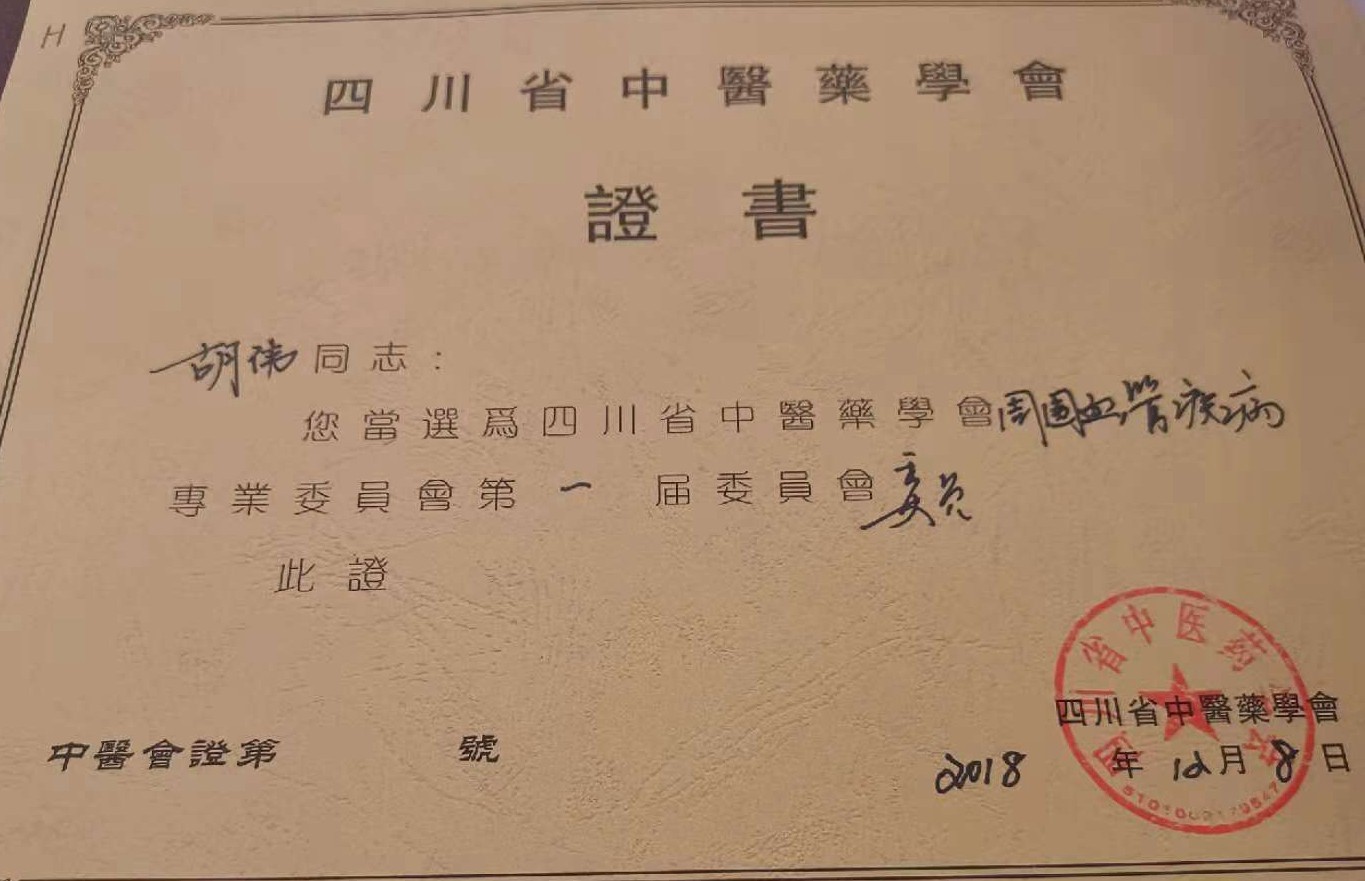 H
四川省中醫藥學會
證書
胡伟同志：
您當選爲四川省中醫藥學會周围血管疾病
專業委員會第一届委員會委员
此證
四川省中医药学会
四川省中醫藥學會
中醫會證第 號
2018年12月8日